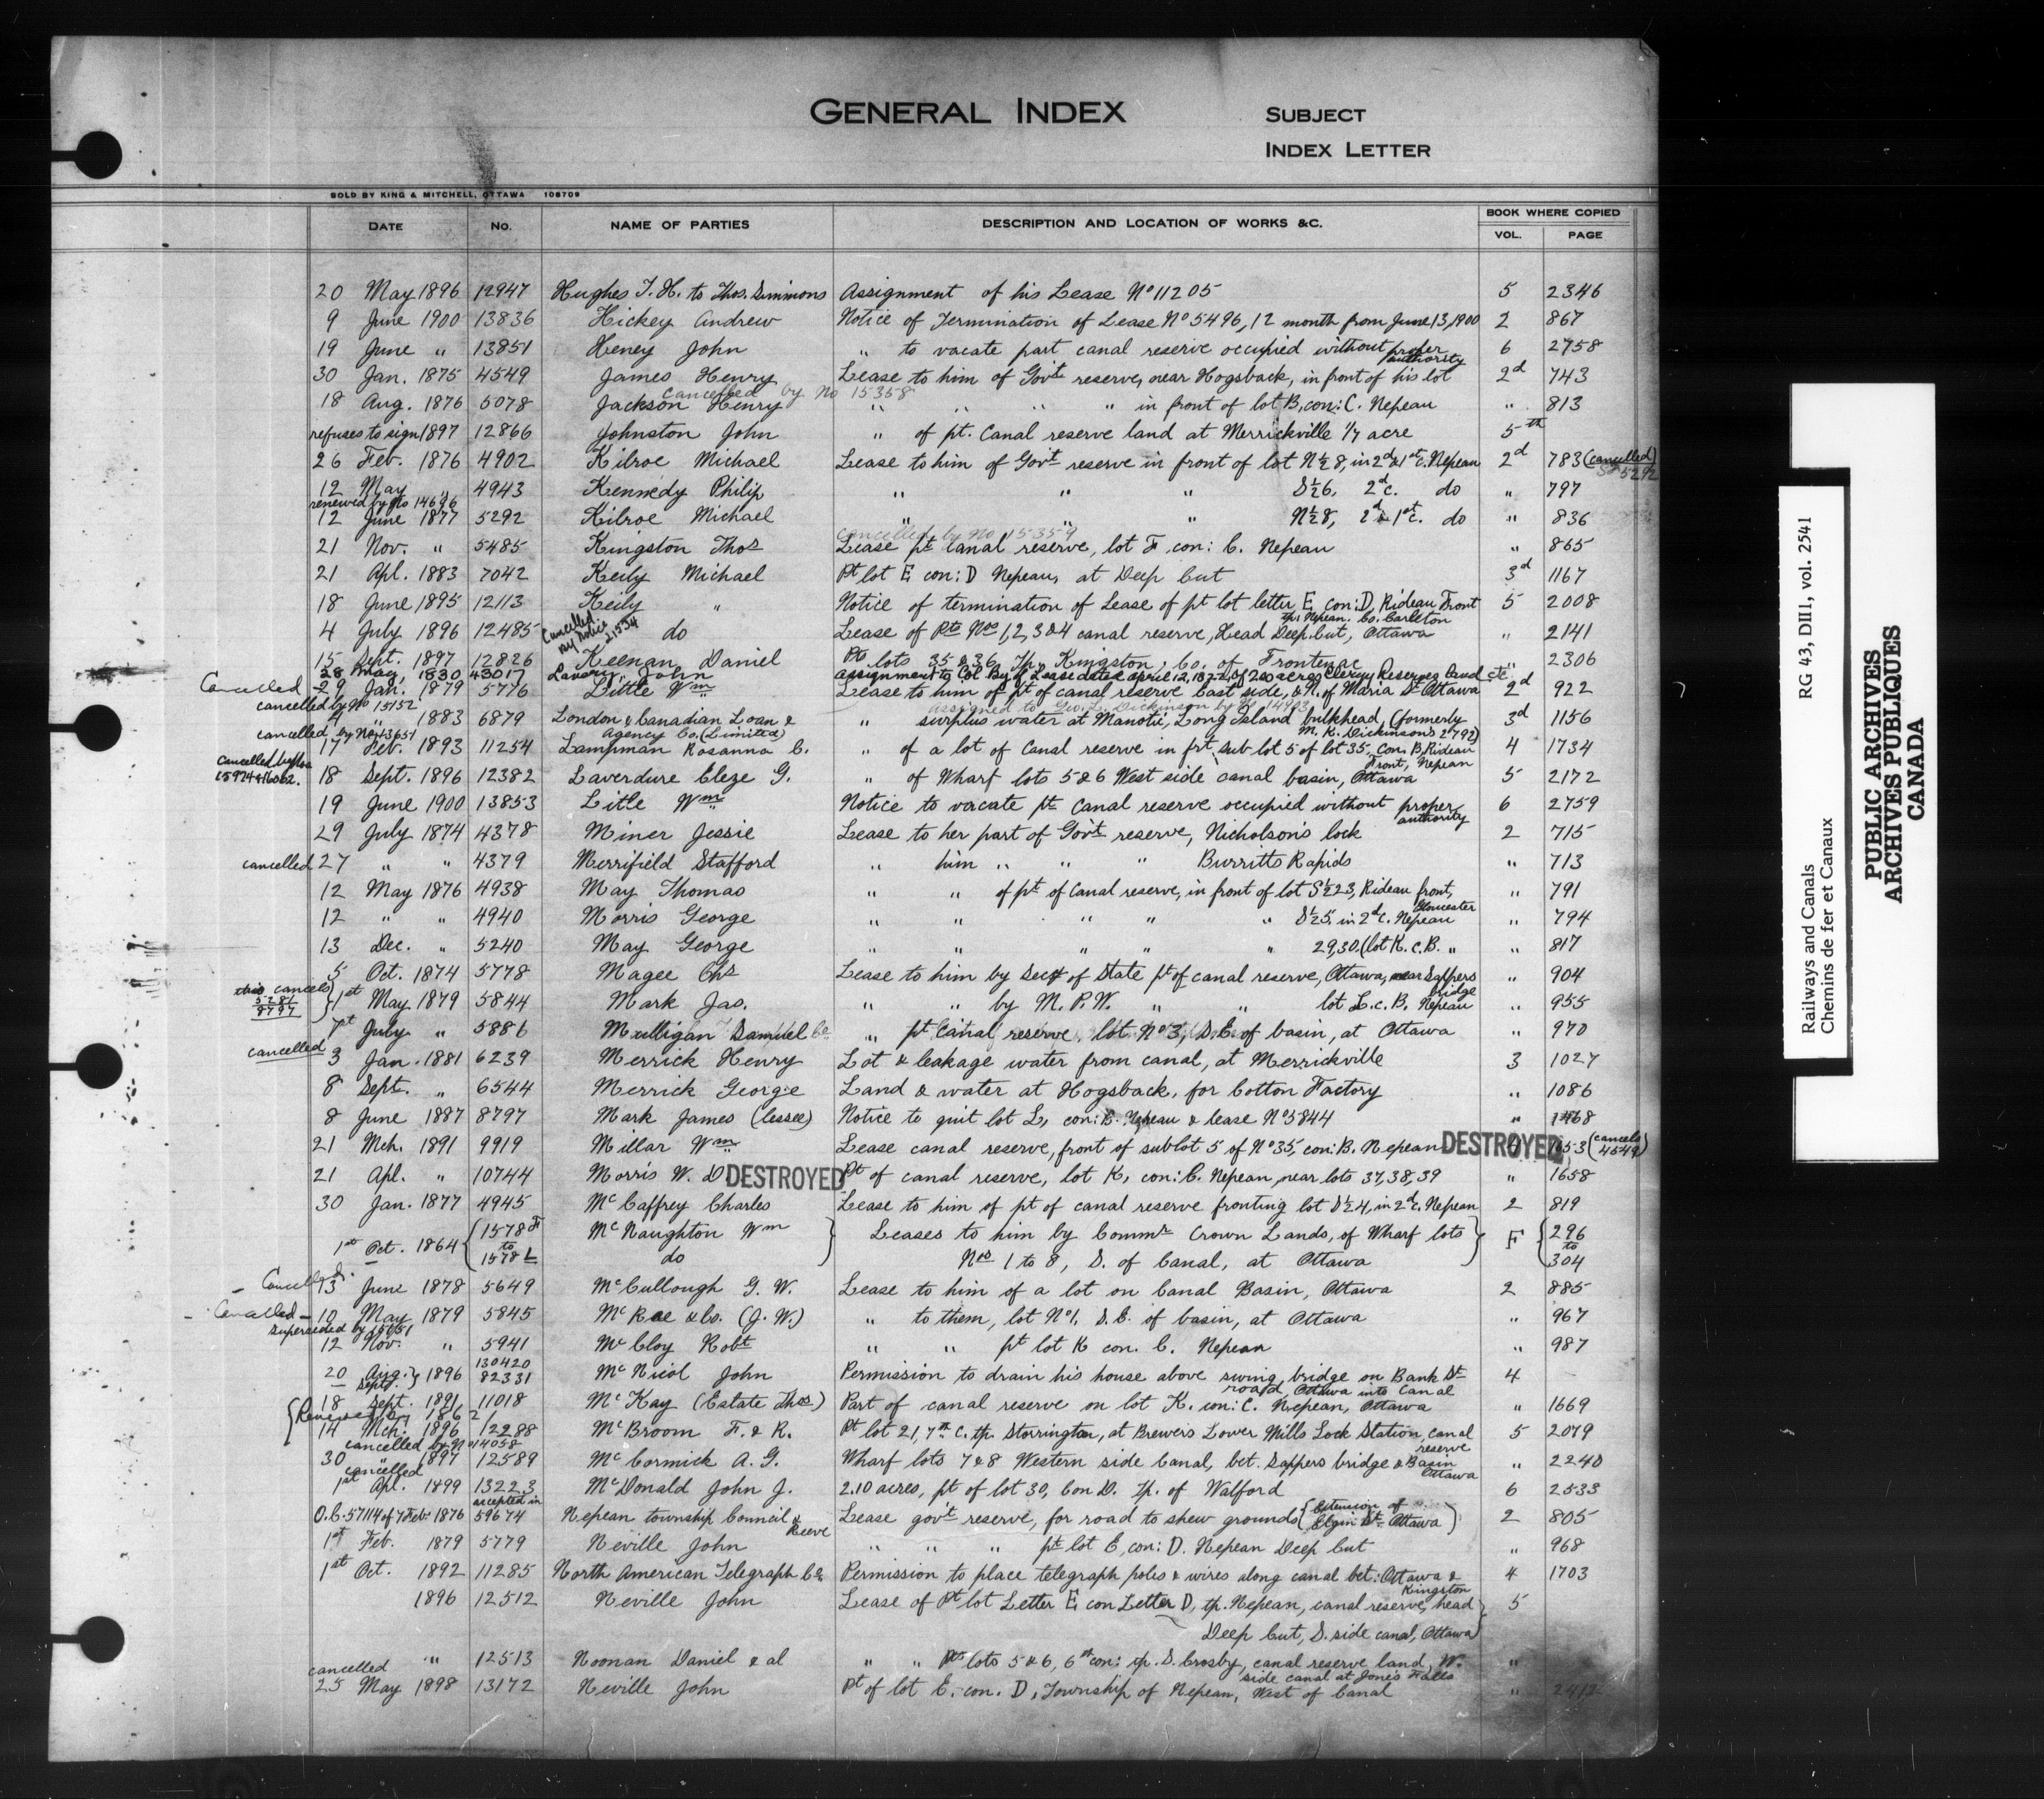 GENERAL INDEX
SUBJECT
INDEX LETTER
SOLD BY KING & MITCHELL, OTTAWA 108709
DATE NO. NAME OF PARTIES DESCRIPTION AND LOCATION OF WORKS &C. BOOK WHERE COPIED
VOL. PAGE
20 May 1896 12947 Hughes T. H. to Thos. Simmons Assignment of his Lease No 11205 5 2346
9 June 1900 13836 Hickey Andrew Notice of Termination of Lease No 5496, 12 month from June 13, 1900 2 867
19 June " 13851 Heney John " to vacate part canal reserve occupied without proper authority 6 2758
30 Jan. 1875 4549 James Henry Lease to him of Gov't reserve, near Hogsback, in front of his lot 2d 743
cancelled by No 15358
18 Aug. 1876 5078 Jackson Henry " " " " in front of lot B, con: C. Nepean " 813
refuses to sign 1897 12866 Johnston John " of pt. Canal reserve land at Merrickville 1/7 acre 5th
26 Feb. 1876 4902 Kilroe Michael Lease to him of Gov't reserve in front of lot N½ 8, in 2d & 1st c. Nepean 2d 783 (cancelled) 5292
12 May " 4943 Kennedy Philip " " " S½ 6, 2d c. do " 797
renewed by No 14696
12 June 1877 5292 Kilroe Michael " " " N½ 8, 2d & 1st c. do " 836
cancelled by No 15359
21 Nov. " 5485 Kingston Thos Lease pt canal reserve, lot F, con: C. Nepean " 865
21 Apl. 1883 7042 Keily Michael Pt lot E, con: D Nepean, at Deep Cut 3d 1167
18 June 1895 12113 Keily " Notice of termination of Lease of pt lot letter E, con: D, Rideau Front 5 2008
tp. Nepean. Co. Carleton
4 July 1896 12485 Cancelled by Notice 21534 do Lease of Pts Nos 1, 2, 3 & 4 canal reserve, Head Deep Cut, Ottawa " 2141
15 Sept. 1897 12826 Keenan Daniel Pts lots 35 & 36, Tp. Kingston, Co. of Frontenac " 2306
28 May, 1830 43017 Lavery, John assignment to Col By of Lease dated April 12, 1822, of 200 acres Clergy Reserves Land etc
Cancelled 29 Jan. 1879 5776 Little Wm Lease to him of pt of canal reserve East side, & N. of Maria St Ottawa 2d 922
cancelled by No 15152 assigned to Geo. L. Dickinson by No 14903
4 " 1883 6879 London & Canadian Loan & Agency Co. (Limited) " surplus water at Manotic, Long Island bulkhead, (formerly M. K. Dickinson's 2792) 3d 1156
cancelled by No 13651
17 Feb. 1893 11254 Lampman Rosanna C. " of a lot of Canal reserve in frt. sub lot 5 of lot 35, Con. B, Rideau Front, Nepean 4 1734
Cancelled by Nos 15924 & 16062. 18 Sept. 1896 12382 Laverdure Eleze G. " of Wharf lots 5 & 6 West side canal basin, Ottawa 5 2172
19 June 1900 13853 Litle Wm Notice to vacate pt Canal reserve occupied without proper authority 6 2759
29 July 1874 4378 Miner Jessie Lease to her part of Gov't reserve, Nicholson's lock 2 715
cancelled 27 " " 4379 Merrifield Stafford " him " " " Burritts Rapids " 713
12 May 1876 4938 May Thomas " " of pt of Canal reserve, in front of lot S½ 23, Rideau front, Gloucester " 791
12 " " 4940 Morris George " " " " " S½ 25, in 2d c. Nepean " 794
13 Dec. " 5240 May George " " " " " 29, 30, (lot K. c. B. " " 817
5 Oct. 1874 5778 Magee Chs Lease to him by Secy of State pt of canal reserve, Ottawa, near Sappers bridge " 904
this cancels 5281 8797 1st May 1879 5844 Mark Jas. " " by M. P. W. " " lot L. c. B, Nepean " 955
7th July " 5886 Mulligan Samuel Co " pt Canal reserve, lot No 3, S. E. of basin, at Ottawa " 970
cancelled 3 Jan. 1881 6239 Merrick Henry Lot & leakage water from canal, at Merrickville 3 1027
8 Sept. " 6544 Merrick George Land & water at Hogsback, for Cotton Factory " 1086
8 June 1887 8797 Mark James (lessee) Notice to quit lot L, con: B. Nepean & lease No 5844 " 1468
21 Mch. 1891 9919 Millar Wm Lease canal reserve, front of sub lot 5 of No 35, con: B. Nepean DESTROYED 4 1653 (cancels 4549)
21 Apl. " 10744 Morris W. D DESTROYED Pt of canal reserve, lot K, con: C. Nepean, near lots 37, 38, 39 " 1658
30 Jan. 1877 4945 McCaffrey Charles Lease to him of pt of canal reserve fronting lot S½ 4, in 2d c. Nepean 2 819
1st Oct. 1864 1578 F to 1578 L McNaughton Wm Leases to him by Commr Crown Lands, of Wharf lots F 296 to 304
do Nos 1 to 8, S. of Canal, at Ottawa
Cancelled. 13 June 1878 5649 McCullough G. W. Lease to him of a lot on Canal Basin, Ottawa 2 885
Cancelled 10 May 1879 5845 McRae & Co. (J. W.) " to them, lot No 1, S. E. of basin, at Ottawa " 967
superseded by 15051
12 Nov. " 5941 McCloy Robt " " pt lot K con. C. Nepean " 987
20 Aug. Sept. 1896 130420 82331 McNicol John Permission to drain his house above swing bridge on Bank St road, Ottawa into Canal 4
18 Sept. 1891 11018 McKay (Estate Thos) Part of canal reserve on lot K. con: C. Nepean, Ottawa " 1669
14 Mch. 1896 12288 McBroom F. & R. Pt lot 21, 7th C. tp. Storrington, at Brewers Lower Mills Lock Station, canal reserve 5 2079
cancelled by No 14058
30 " 1897 12589 McCormick A. G. Wharf lots 7 & 8 Western side Canal, bet. Sappers bridge & Basin Ottawa " 2240
cancelled
1st Apl. 1899 13223 McDonald John J. 2.10 acres, pt of lot 30, Con D. Tp. of Walford 6 2533
O.C. 57114 of 7 Feb. 1876 accepted in 59674 Nepean township Council & Reeve Lease gov't reserve, for road to shew grounds (Extension of Elgin St. Ottawa) 2 805
1st Feb. 1879 5779 Neville John " " " pt lot E, con: D. Nepean Deep Cut " 968
1st Oct. 1892 11285 North American Telegraph Co Permission to place telegraph poles & wires along canal bet: Ottawa & Kingston 4 1703
1896 12512 Neville John Lease of Pt lot Letter E, con Letter D, tp. Nepean, canal reserve, head 5
Deep Cut, S. side canal, Ottawa
cancelled " 12513 Noonan Daniel & al " " Pts lots 5 & 6, 6th con: tp. S. Crosby, canal reserve land, W. side canal at Jones Falls "
25 May 1898 13172 Neville John Pt of lot E. con. D, Township of Nepean, West of Canal "
Railways and Canals
Chemins de fer et Canaux
RG 43, DIII, vol. 2541
PUBLIC ARCHIVES
ARCHIVES PUBLIQUES
CANADA